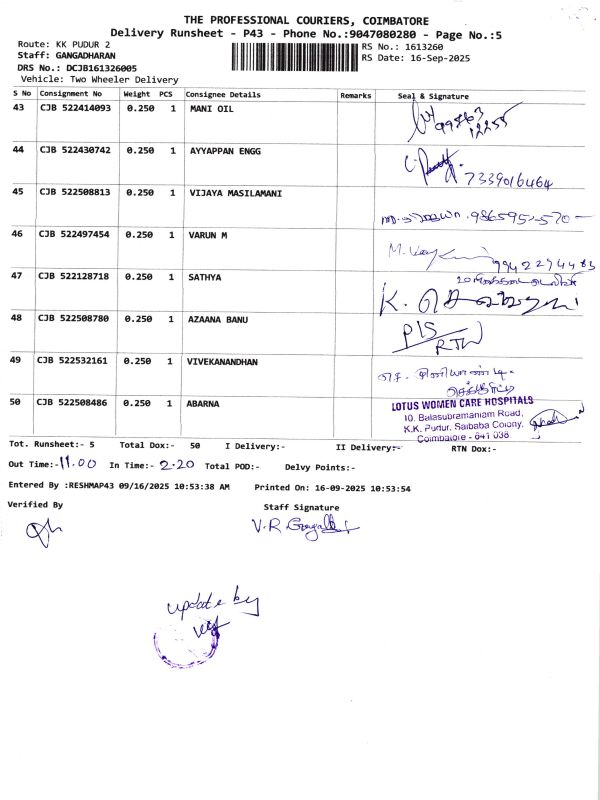 THE PROFESSIONAL COURIERS, COIMBATORE
Delivery Runsheet - P43 - Phone No.:9047080280 - Page No.:5
Route: KK PUDUR 2
RS No.: 1613260
Staff: GANGADHARAN
RS Date: 16-Sep-2025
DRS No.: DCJB161326005
Vehicle: Two Wheeler Delivery
S No Consignment No Weight PCS Consignee Details Remarks Seal & Signature
43 CJB 522414093 0.250 1 MANI OIL
44 CJB 522430742 0.250 1 AYYAPPAN ENGG
7339016464
45 CJB 522508813 0.250 1 VIJAYA MASILAMANI
46 CJB 522497454 0.250 1 VARUN M
9942294483
47 CJB 522128718 0.250 1 SATHYA
48 CJB 522508780 0.250 1 AZAANA BANU
P/S
RTN
49 CJB 522532161 0.250 1 VIVEKANANDHAN
50 CJB 522508486 0.250 1 ABARNA
LOTUS WOMEN CARE HOSPITALS
10, Balasubramaniam Road,
K.K. Pudur, Saibaba Colony,
Coimbatore - 641 038
Tot. Runsheet:- 5 Total Dox:- 50 I Delivery:- II Delivery:- RTN Dox:-
Out Time:- 11.00 In Time:- 2.20 Total POD:- Delvy Points:-
Entered By :RESHMAP43 09/16/2025 10:53:38 AM Printed On: 16-09-2025 10:53:54
Verified By Staff Signature
update by